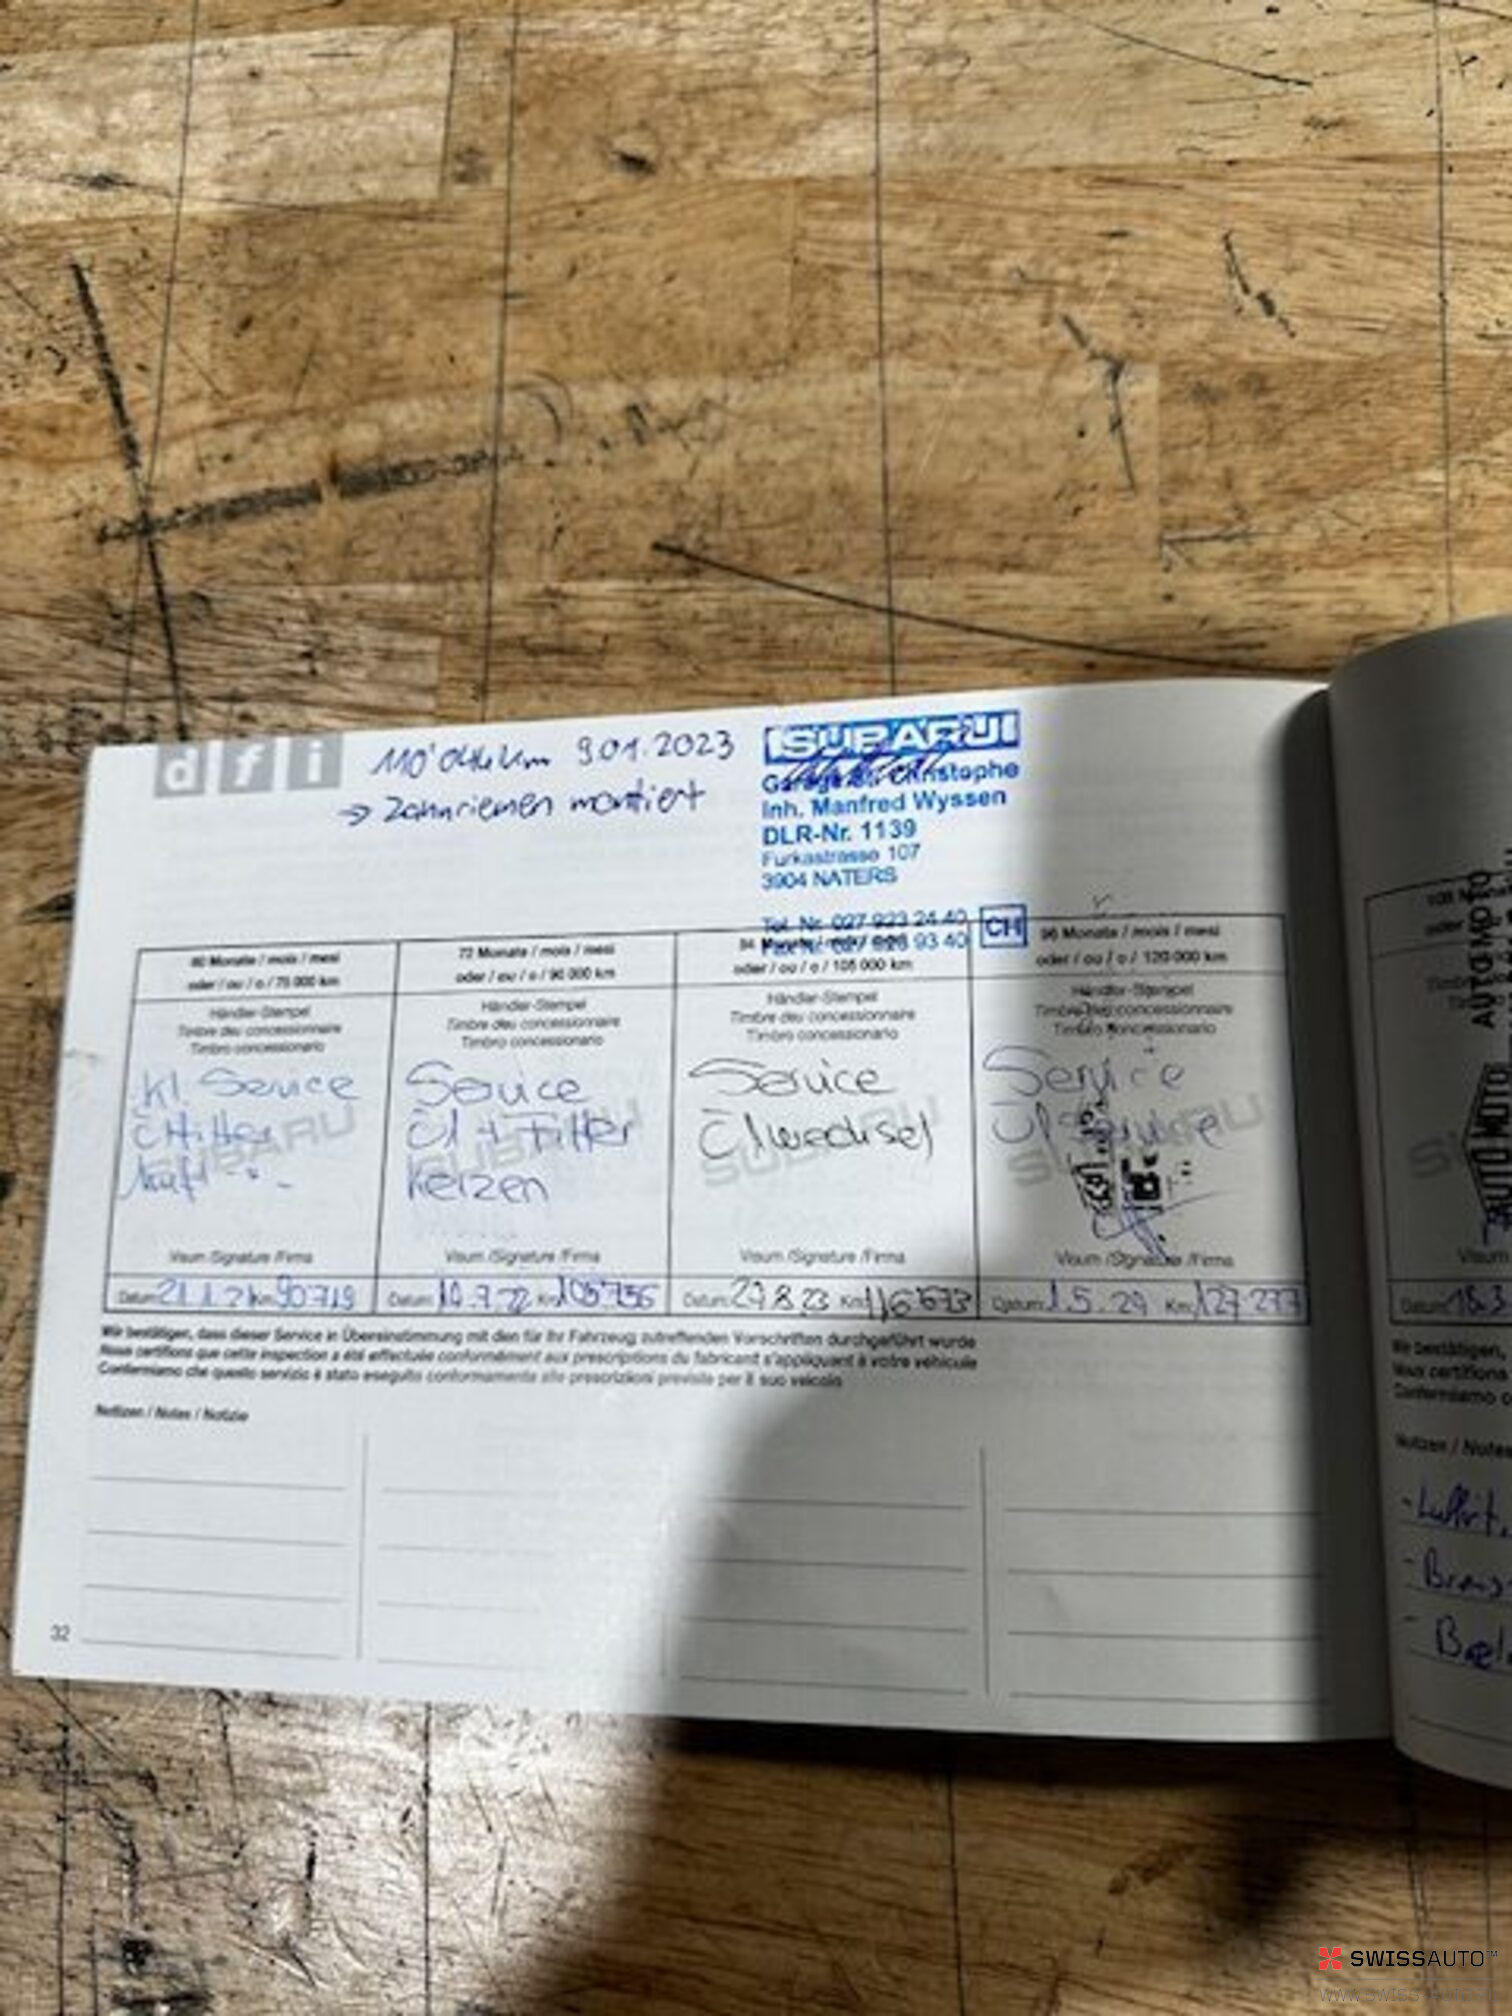 d f i
9.01.2023
→ Zahnriemen montiert
SUBARU
Garage St. Christophe
Inh. Manfred Wyssen
DLR-Nr. 1139
Furkastrasse 107
3904 NATERS
Tel. Nr. 027 923 24 40
Fax Nr. 027 923 93 40
CH
60 Monate / mois / mesi
oder / ou / o / 75 000 km
Händler-Stempel
Timbre deu concessionnaire
Timbro concessionario
Kl. Service
Ölfilter
Visum /Signature /Firma
Datum: 21.1.21 Km: 90719
72 Monate / mois / mesi
oder / ou / o / 90 000 km
Händler-Stempel
Timbre deu concessionnaire
Timbro concessionario
Service
Öl + Filter
Kerzen
Visum /Signature /Firma
Datum: 19.7.22 Km: 105'756
84 Monate / mois / mesi
oder / ou / o / 105 000 km
Händler-Stempel
Timbre deu concessionnaire
Timbro concessionario
Service
Ölwechsel
Visum /Signature /Firma
Datum: 29.8.23 Km: 116'673
96 Monate / mois / mesi
oder / ou / o / 120 000 km
Händler-Stempel
Timbre deu concessionnaire
Timbro concessionario
Service
Öl Service
Visum /Signature /Firma
Datum: 1.5.24 Km: 127'277
SUBARU
Wir bestätigen, dass dieser Service in Übereinstimmung mit den für Ihr Fahrzeug zutreffenden Vorschriften durchgeführt wurde
Nous certifions que cette inspection a été effectuée conformément aux prescriptions du fabricant s'appliquant à votre véhicule
Confermiamo che questo servizio è stato eseguito conformamente alle prescrizioni previste per il suo veicolo
Notizen / Notes / Notizie
32
AUTO MOTO
Visum
Datum: 18.3
Wir bestätigen,
Nous certifions
Confermiamo
Notizen / Notes
SWISSAUTO™
www.swissauto